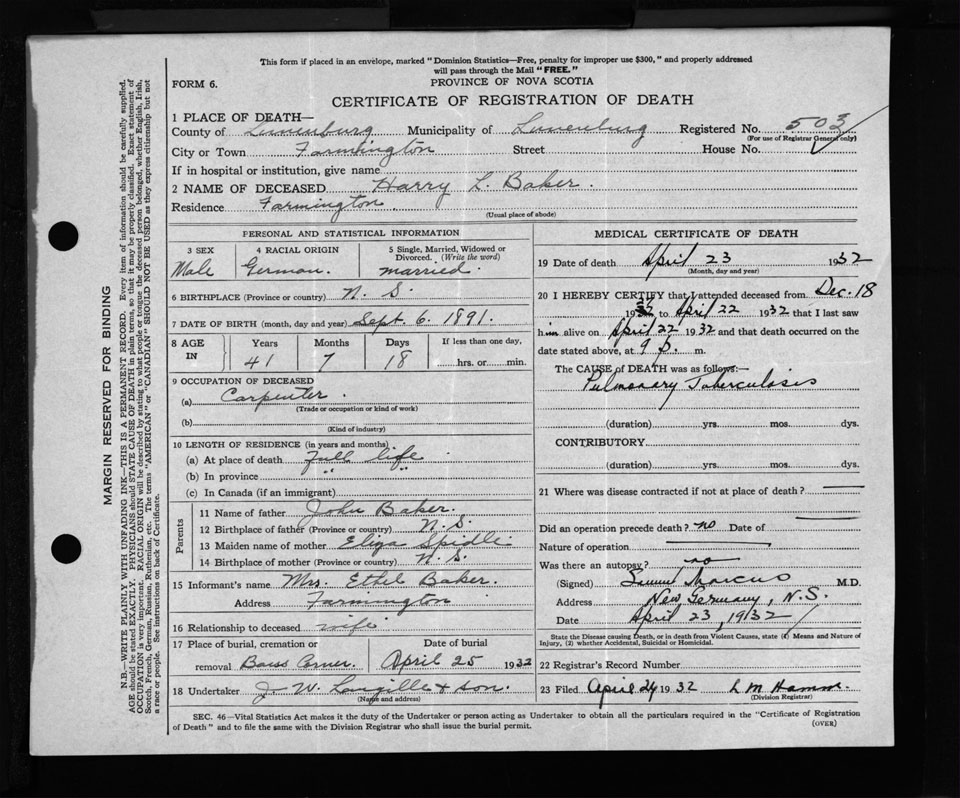 This form if placed in an envelope, marked "Dominion Statistics—Free, penalty for improper use $300," and properly addressed
will pass through the Mail "FREE."
FORM 6.
PROVINCE OF NOVA SCOTIA
CERTIFICATE OF REGISTRATION OF DEATH
1 PLACE OF DEATH—
County of Lunenburg Municipality of Lunenburg Registered No. 503
(For use of Registrar General only)
City or Town Farmington Street House No.
If in hospital or institution, give name
2 NAME OF DECEASED Harry L. Baker.
Residence Farmington.
(Usual place of abode)
PERSONAL AND STATISTICAL INFORMATION
3 SEX 4 RACIAL ORIGIN 5 Single, Married, Widowed or
Divorced. (Write the word)
Male German. married.
6 BIRTHPLACE (Province or country) N. S.
7 DATE OF BIRTH (month, day and year) Sept. 6. 1891.
8 AGE IN Years Months Days If less than one day,
41 7 18 hrs. or min.
9 OCCUPATION OF DECEASED
(a) Carpenter.
(Trade or occupation or kind of work)
(b)
(Kind of industry)
10 LENGTH OF RESIDENCE (in years and months)
(a) At place of death Full life
(b) In province " "
(c) In Canada (if an immigrant)
Parents
11 Name of father John Baker.
12 Birthplace of father (Province or country) N. S.
13 Maiden name of mother Eliza Spidle
14 Birthplace of mother (Province or country) N. S.
15 Informant's name Mrs. Ethel Baker.
Address Farmington
16 Relationship to deceased wife
17 Place of burial, cremation or Date of burial
removal Corner. April 25 1932
18 Undertaker J. W. Langille & son.
(Name and address)
MEDICAL CERTIFICATE OF DEATH
19 Date of death April 23 1932
(Month, day and year)
20 I HEREBY CERTIFY that I attended deceased from Dec. 18
19 to April 22 1932 that I last saw
him alive on April 22 1932 and that death occurred on the
date stated above, at 9 p. m.
The CAUSE of DEATH was as follows:—
Pulmonary Tuberculosis
(duration) yrs. mos. dys.
CONTRIBUTORY
(duration) yrs. mos. dys.
21 Where was disease contracted if not at place of death?
Did an operation precede death? no Date of
Nature of operation
Was there an autopsy? no
(Signed) Marcus M.D.
Address New Germany, N.S.
Date April 23, 1932
State the Disease causing Death, or in death from Violent Causes, state (1) Means and Nature of
Injury, (2) whether Accidental, Suicidal or Homicidal.
22 Registrar's Record Number
23 Filed April 24 1932 L M
(Division Registrar)
SEC. 46—Vital Statistics Act makes it the duty of the Undertaker or person acting as Undertaker to obtain all the particulars required in the "Certificate of Registration
of Death" and to file the same with the Division Registrar who shall issue the burial permit.
(OVER)
MARGIN RESERVED FOR BINDING
N.B.—WRITE PLAINLY WITH UNFADING INK—THIS IS A PERMANENT RECORD. Every item of information should be carefully supplied.
AGE should be stated EXACTLY. PHYSICIANS should STATE CAUSE OF DEATH in plain terms, so that it may be properly classified. Exact statement of
OCCUPATION is very important. RACIAL ORIGIN will be described by stating to what people or tongue the deceased person belonged, whether English, Irish,
Scotch, French, German, Russian, Ruthenian, etc. The terms "AMERICAN" or "CANADIAN" SHOULD NOT BE USED as they express citizenship but not
a race or people. See instructions on back of Certificate.